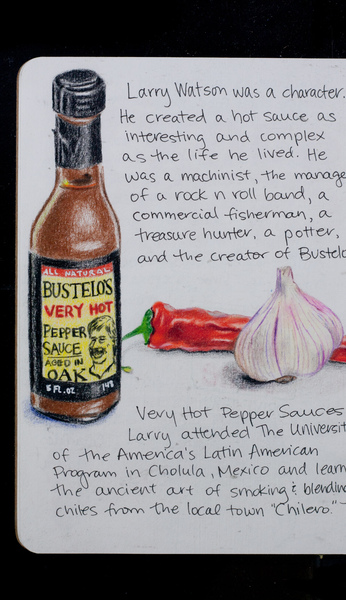 Larry Watson was a character.
He created a hot sauce as
interesting and complex
as the life he lived. He
was a machinist, the manage
of a rock n roll band, a
commercial fisherman, a
treasure hunter, a potter,
and the creator of Bustelo
ALL NATURAL
BUSTELO'S
VERY HOT
PEPPER
SAUCE
AGED IN
OAK
5 FL. OZ 148
Very Hot Pepper Sauces
Larry attended The Universit
of the America's Latin American
Program in Cholula, Mexico and learn
the ancient art of smoking & blending
chiles from the local town "Chilero."